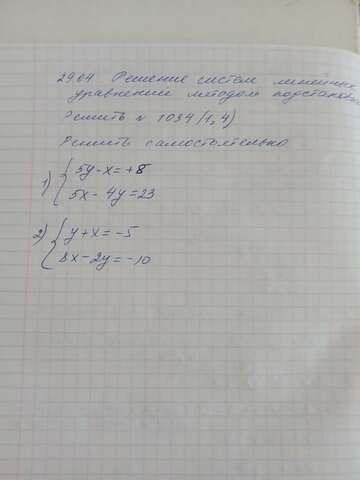 29.04 Решение систем линейных
уравнений методом подстанов
Решить N 1034 (1,4)
Решить самостоятельно
1) { 5y-x=+8
5x-4y=23
2) { y+x=-5
8x-2y=-10